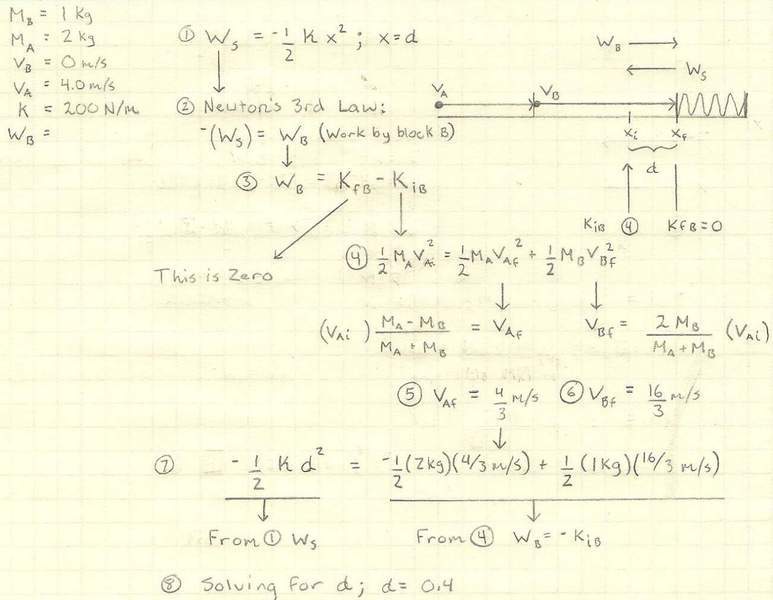 M_B = 1 Kg
M_A = 2 kg
V_B = 0 m/s
V_A = 4.0 m/s
K = 200 N/m
W_B =
① W_s = -1/2 K x²; x=d
② Newton's 3rd Law:
-(W_s) = W_B (Work by block B)
③ W_B = K_fB - K_iB
This is Zero
V_A
V_B
W_B
W_s
x_i
x_f
d
K_iB ④
K_fB = 0
④ 1/2 M_A V_Ai² = 1/2 M_A V_Af² + 1/2 M_B V_Bf²
(V_Ai) (M_A - M_B)/(M_A + M_B) = V_Af
V_Bf = 2 M_B/(M_A + M_B) (V_Ai)
⑤ V_Af = 4/3 m/s
⑥ V_Bf = 16/3 m/s
⑦ -1/2 K d² = -1/2 (2kg)(4/3 m/s) + 1/2 (1Kg)(16/3 m/s)
From ① W_s
From ④ W_B = - K_iB
⑧ Solving for d; d = 0.4